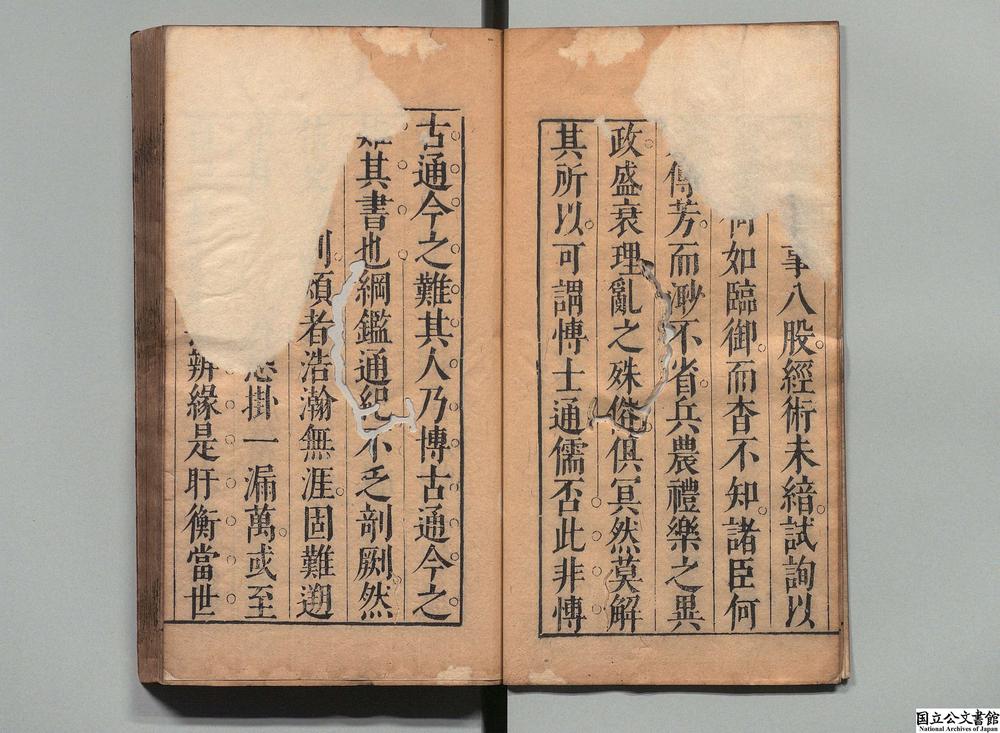 事八股經術未諳試詢以
何如臨御而杳不知諸臣何
傳芳而渺不省兵農禮樂之異
政盛衰理亂之殊俱冥然莫解
其所以可謂博士通儒否此非博
古通今之難其人乃博古通今之
難其書也綱鑑通紀不乏剞劂然
煩者浩瀚無涯固難遡
掛一漏萬或至
辨緣是盱衡當世
国立公文書館
National Archives of Japan